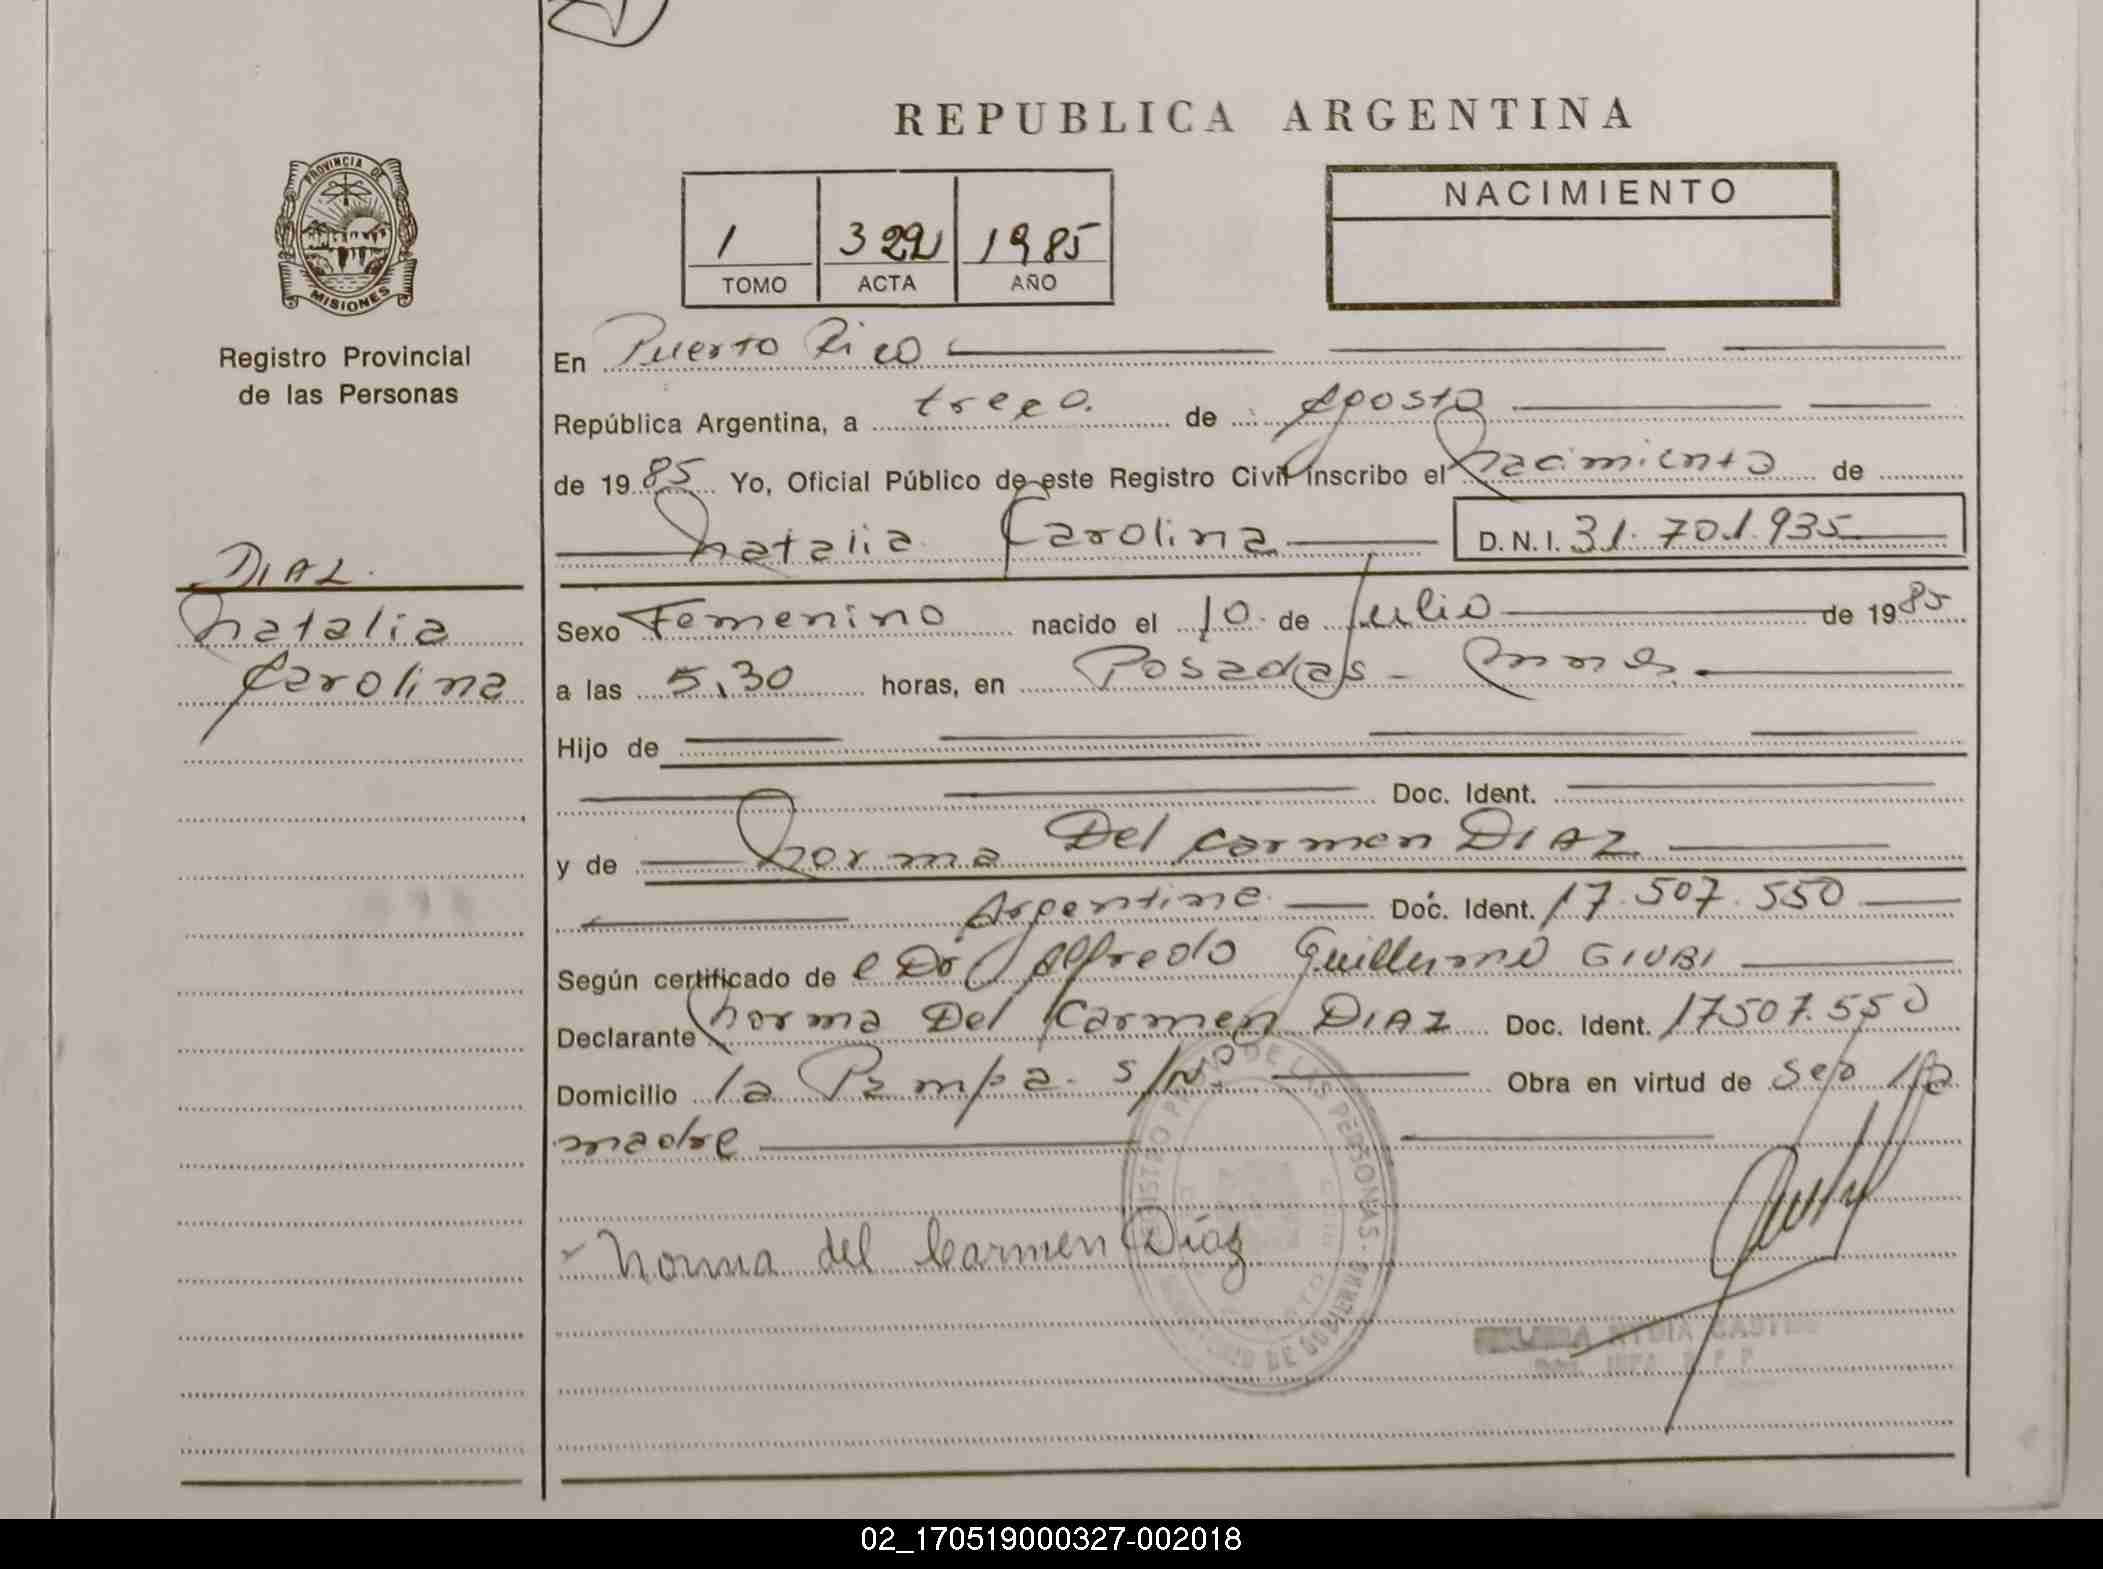 REPUBLICA ARGENTINA
PROVINCIA DE
MISIONES
Registro Provincial
de las Personas
DIAZ
Natalia
Carolina
1 322 1985
TOMO ACTA AÑO
NACIMIENTO
En Puerto Rico
República Argentina, a trece de Agosto
de 1985 Yo, Oficial Público de este Registro Civil inscribo el Nacimiento de
Natalia Carolina D.N.I. 31.701.935
Sexo Femenino nacido el 10 de Julio de 1985
a las 5,30 horas, en Posadas - Mnes.
Hijo de
Doc. Ident.
y de Norma Del Carmen DIAZ
Argentina Doc. Ident. 17.507.550
Según certificado de el Dr Alfredo Guillermo GIUBI
Declarante Norma Del Carmen DIAZ Doc. Ident. 17507.550
Domicilio la Pampa s/Nº Obra en virtud de ser la
madre
Norma del Carmen Díaz
DE LAS PERSONAS
DE GOBIERNO
02_170519000327-002018